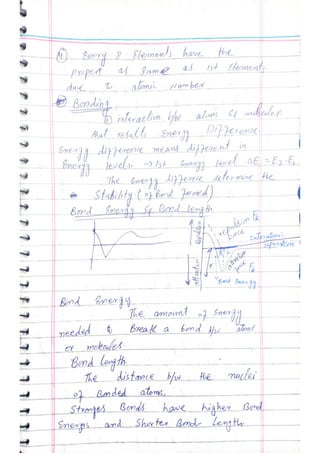 ④ Every 8 Elements have the
propert as same as 1st Elements
due to atomic Number
Bonding
interaction b/w atoms molecules
that results Energy Difference
Energy difference means different in
Energy levels → 1st Energy level ΔE = E2-E1
The Energy difference determine the
Stability (of Bond formed)
Bond Energy Bond Length
repulsion
force
attraction
force
Bond Energy
Bond Energy
The amount of Energy
needed to Break a bond b/w atoms
or molecules
Bond Length
The distance b/w the nuclei
of Bonded atoms.
Stronger Bonds have higher Bond
Energies and Shorter Bond Lengths